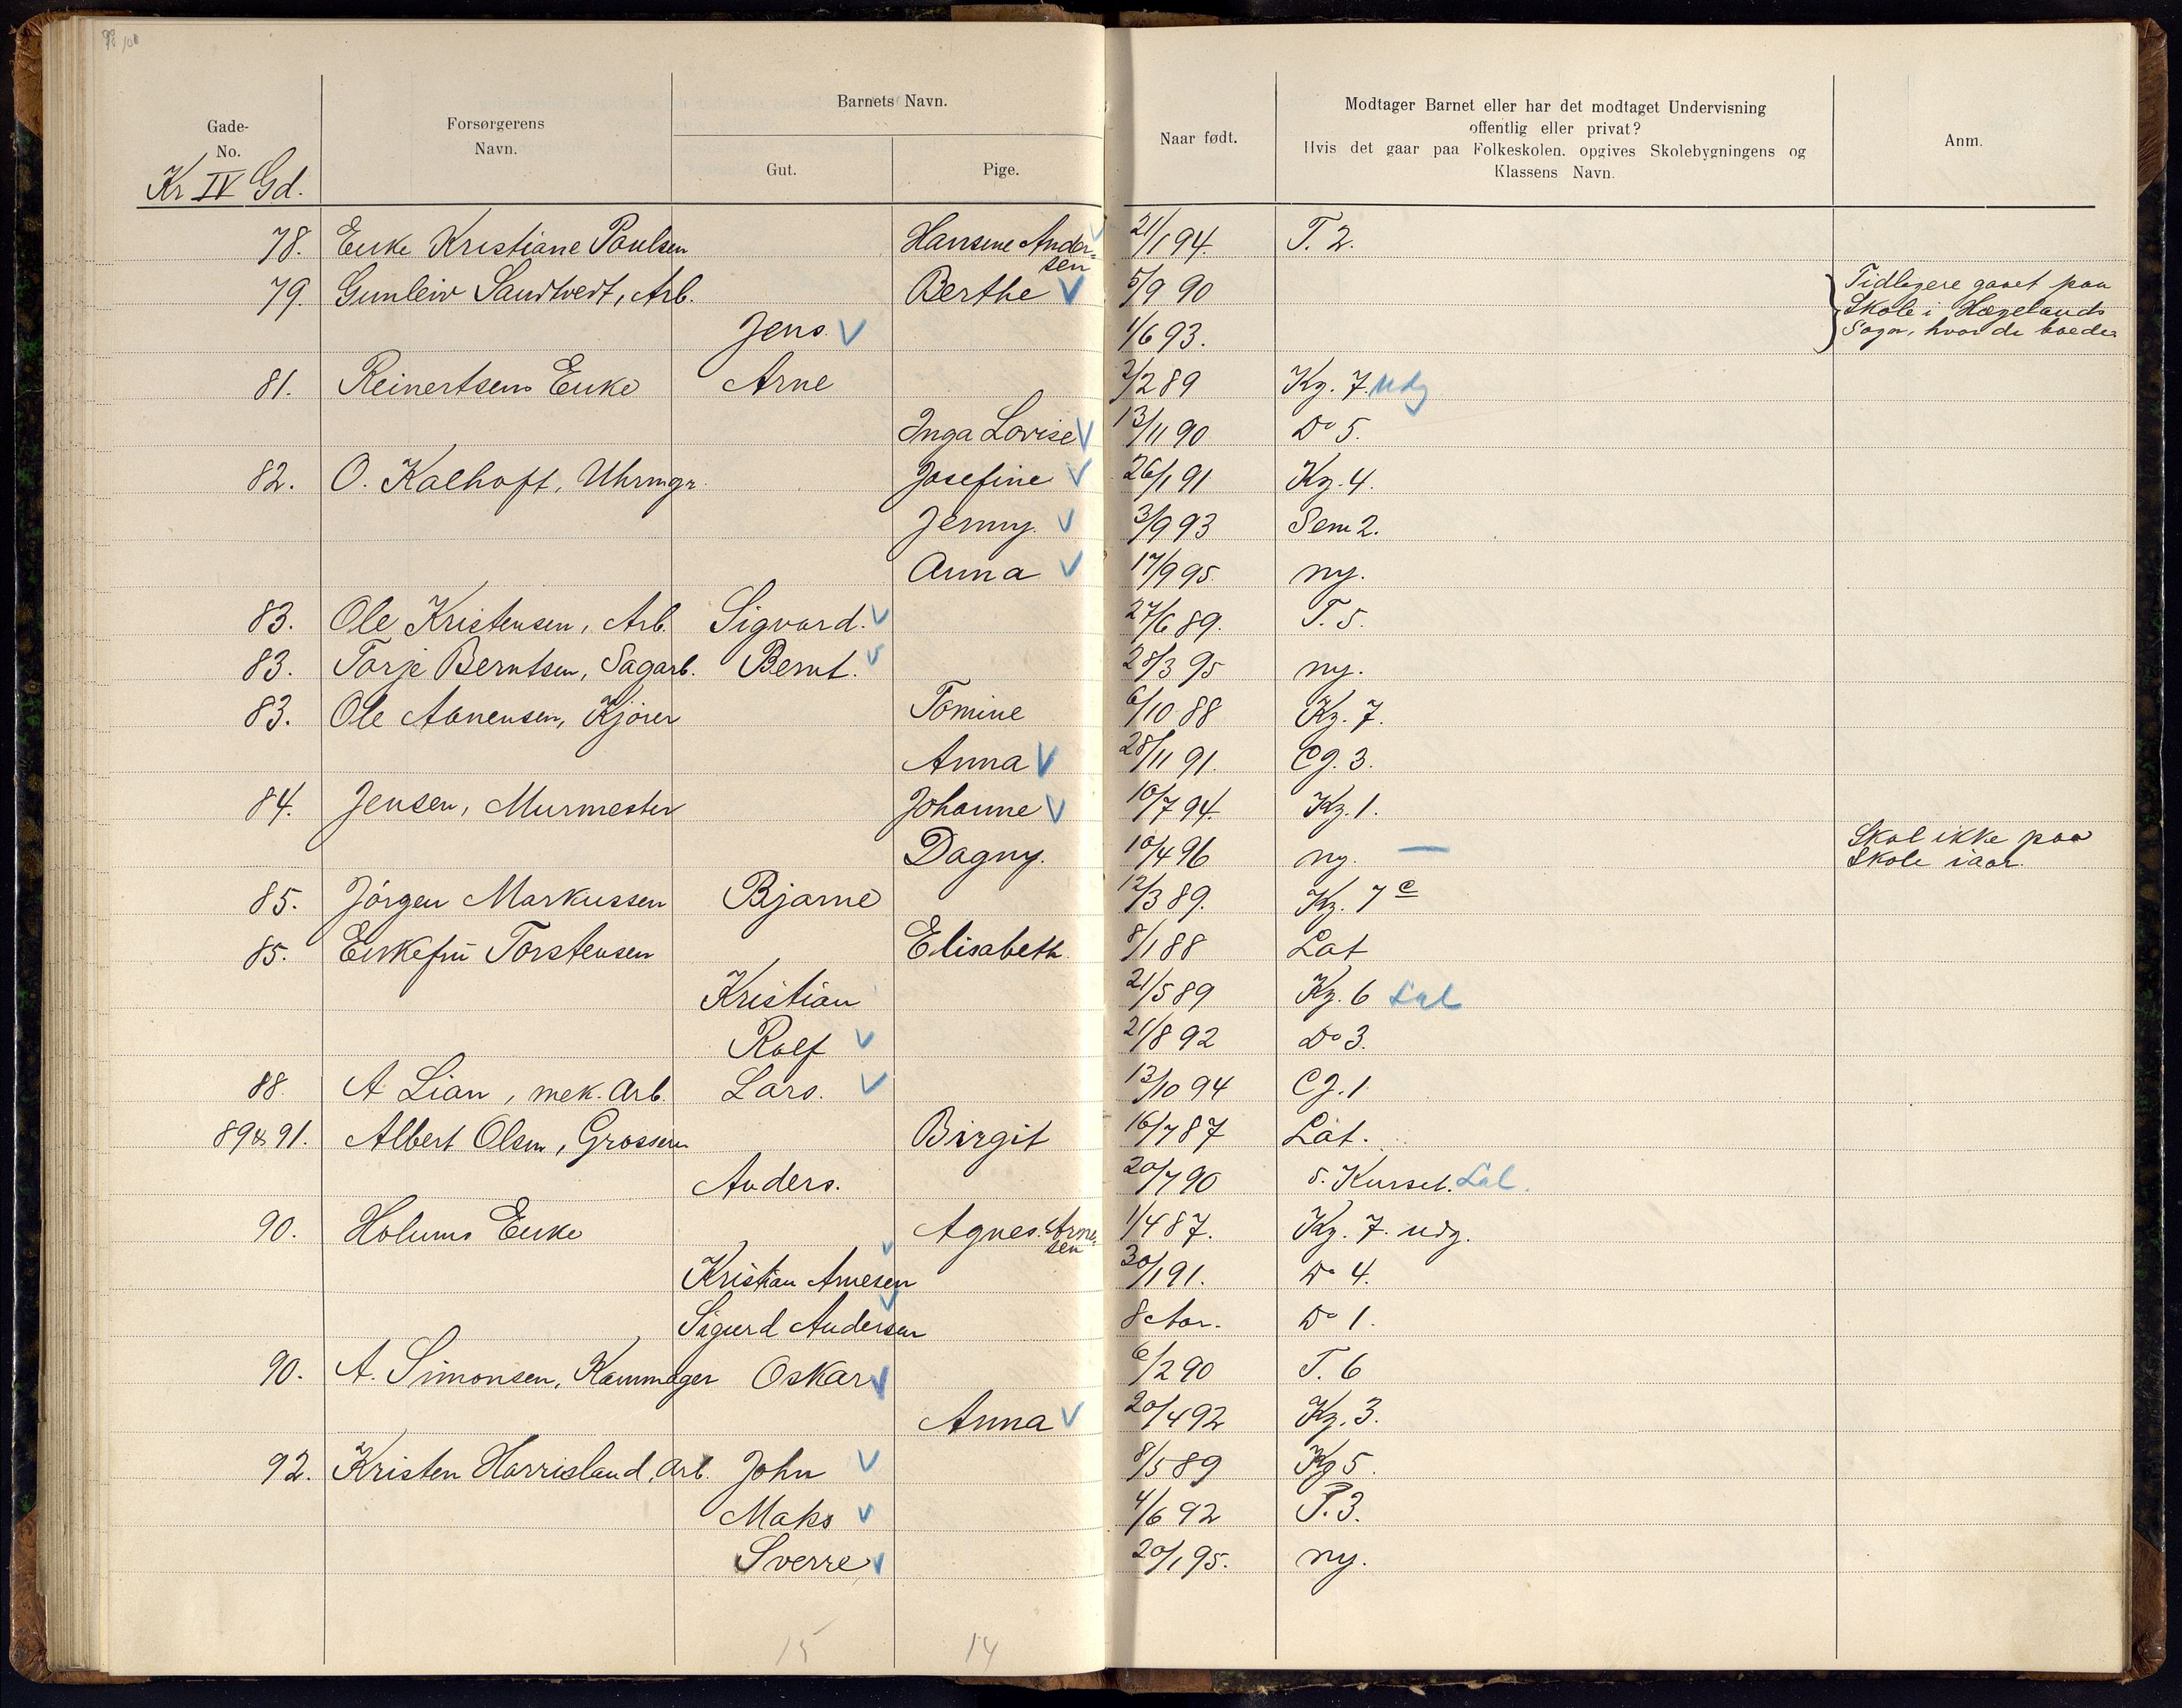 Gade-
No.
Kr IV Gd.
Forsørgerens
Navn.
Barnets Navn.
Gut.
Pige.
Naar født.
Modtager Barnet eller har det modtaget Undervisning
offentlig eller privat?
Hvis det gaar paa Folkeskolen. opgives Skolebygningens og
Klassens Navn.
Anm.
78. Enke Kristiane Paulsen Hansine Ander= 21/1 94. T. 2.
sen
79. Gunleiv Sandtvedt, Arb. Berthe V 5/9 90 Tidligere gaaet paa
Skole i Hægelands
Jens. V 1/6 93. Sogn, hvor de boede
81. Reinertsens Enke Arne 2/2 89 Kg. 7. udg
Inga Lovise V 13/11 90 Do 5.
82. O. Kalhoft, Uhrmgr. Josefine V 26/1 91 Kg. 4.
Jenny. V 3/9 93 Sem 2.
Anna V 17/9 95 ny.
83. Ole Kristensen, Arb. Sigvard. V 27/6 89. T. 5.
83. Torje Berntsen, Sagarb. Bernt. V 28/3 95 ny.
83. Ole Aanensen, Kjører Tomine 6/10 88 Kg. 7.
Anna V 28/11 91. Cg. 3.
84. Jensen, Murmester Johanne V 10/7 94. Kg. 1.
Dagny. 10/4 96 ny. — Skal ikke paa
Skole iaar.
85. Jörgen Markussen Bjarne 12/3 89. Kg. 7 c
85. Enkefru Torstensen Elisabeth 8/1 88 Lat
Kristian 21/5 89 Kg. 6 Lat
Rolf V 21/8 92 Do 3.
88. A Lian, mek. Arb. Lars. V 13/10 94 Cg. 1
89 & 91. Albert Olsen, Grosserer Birgit 16/7 87 Lat.
Anders. 20/7 90 5. Kurset. Lat.
90. Holums Enke Agnes. Arne= 1/4 87. Kg. 7. udg.
sen
Kristian Arnesen V 30/1 91. Do 4.
Sigurd Andersen V 8 Aar. Do 1.
90. A. Simonsen, Kammager Oskar V 6/2 90 T. 6
Anna V 20/4 92 Kg. 3.
92. Kristen Harrisland, Arb. John V 8/5 89 Kg 5.
Maks V 4/6 92 T. 3.
Sverre V 20/1 95. ny.
15 14